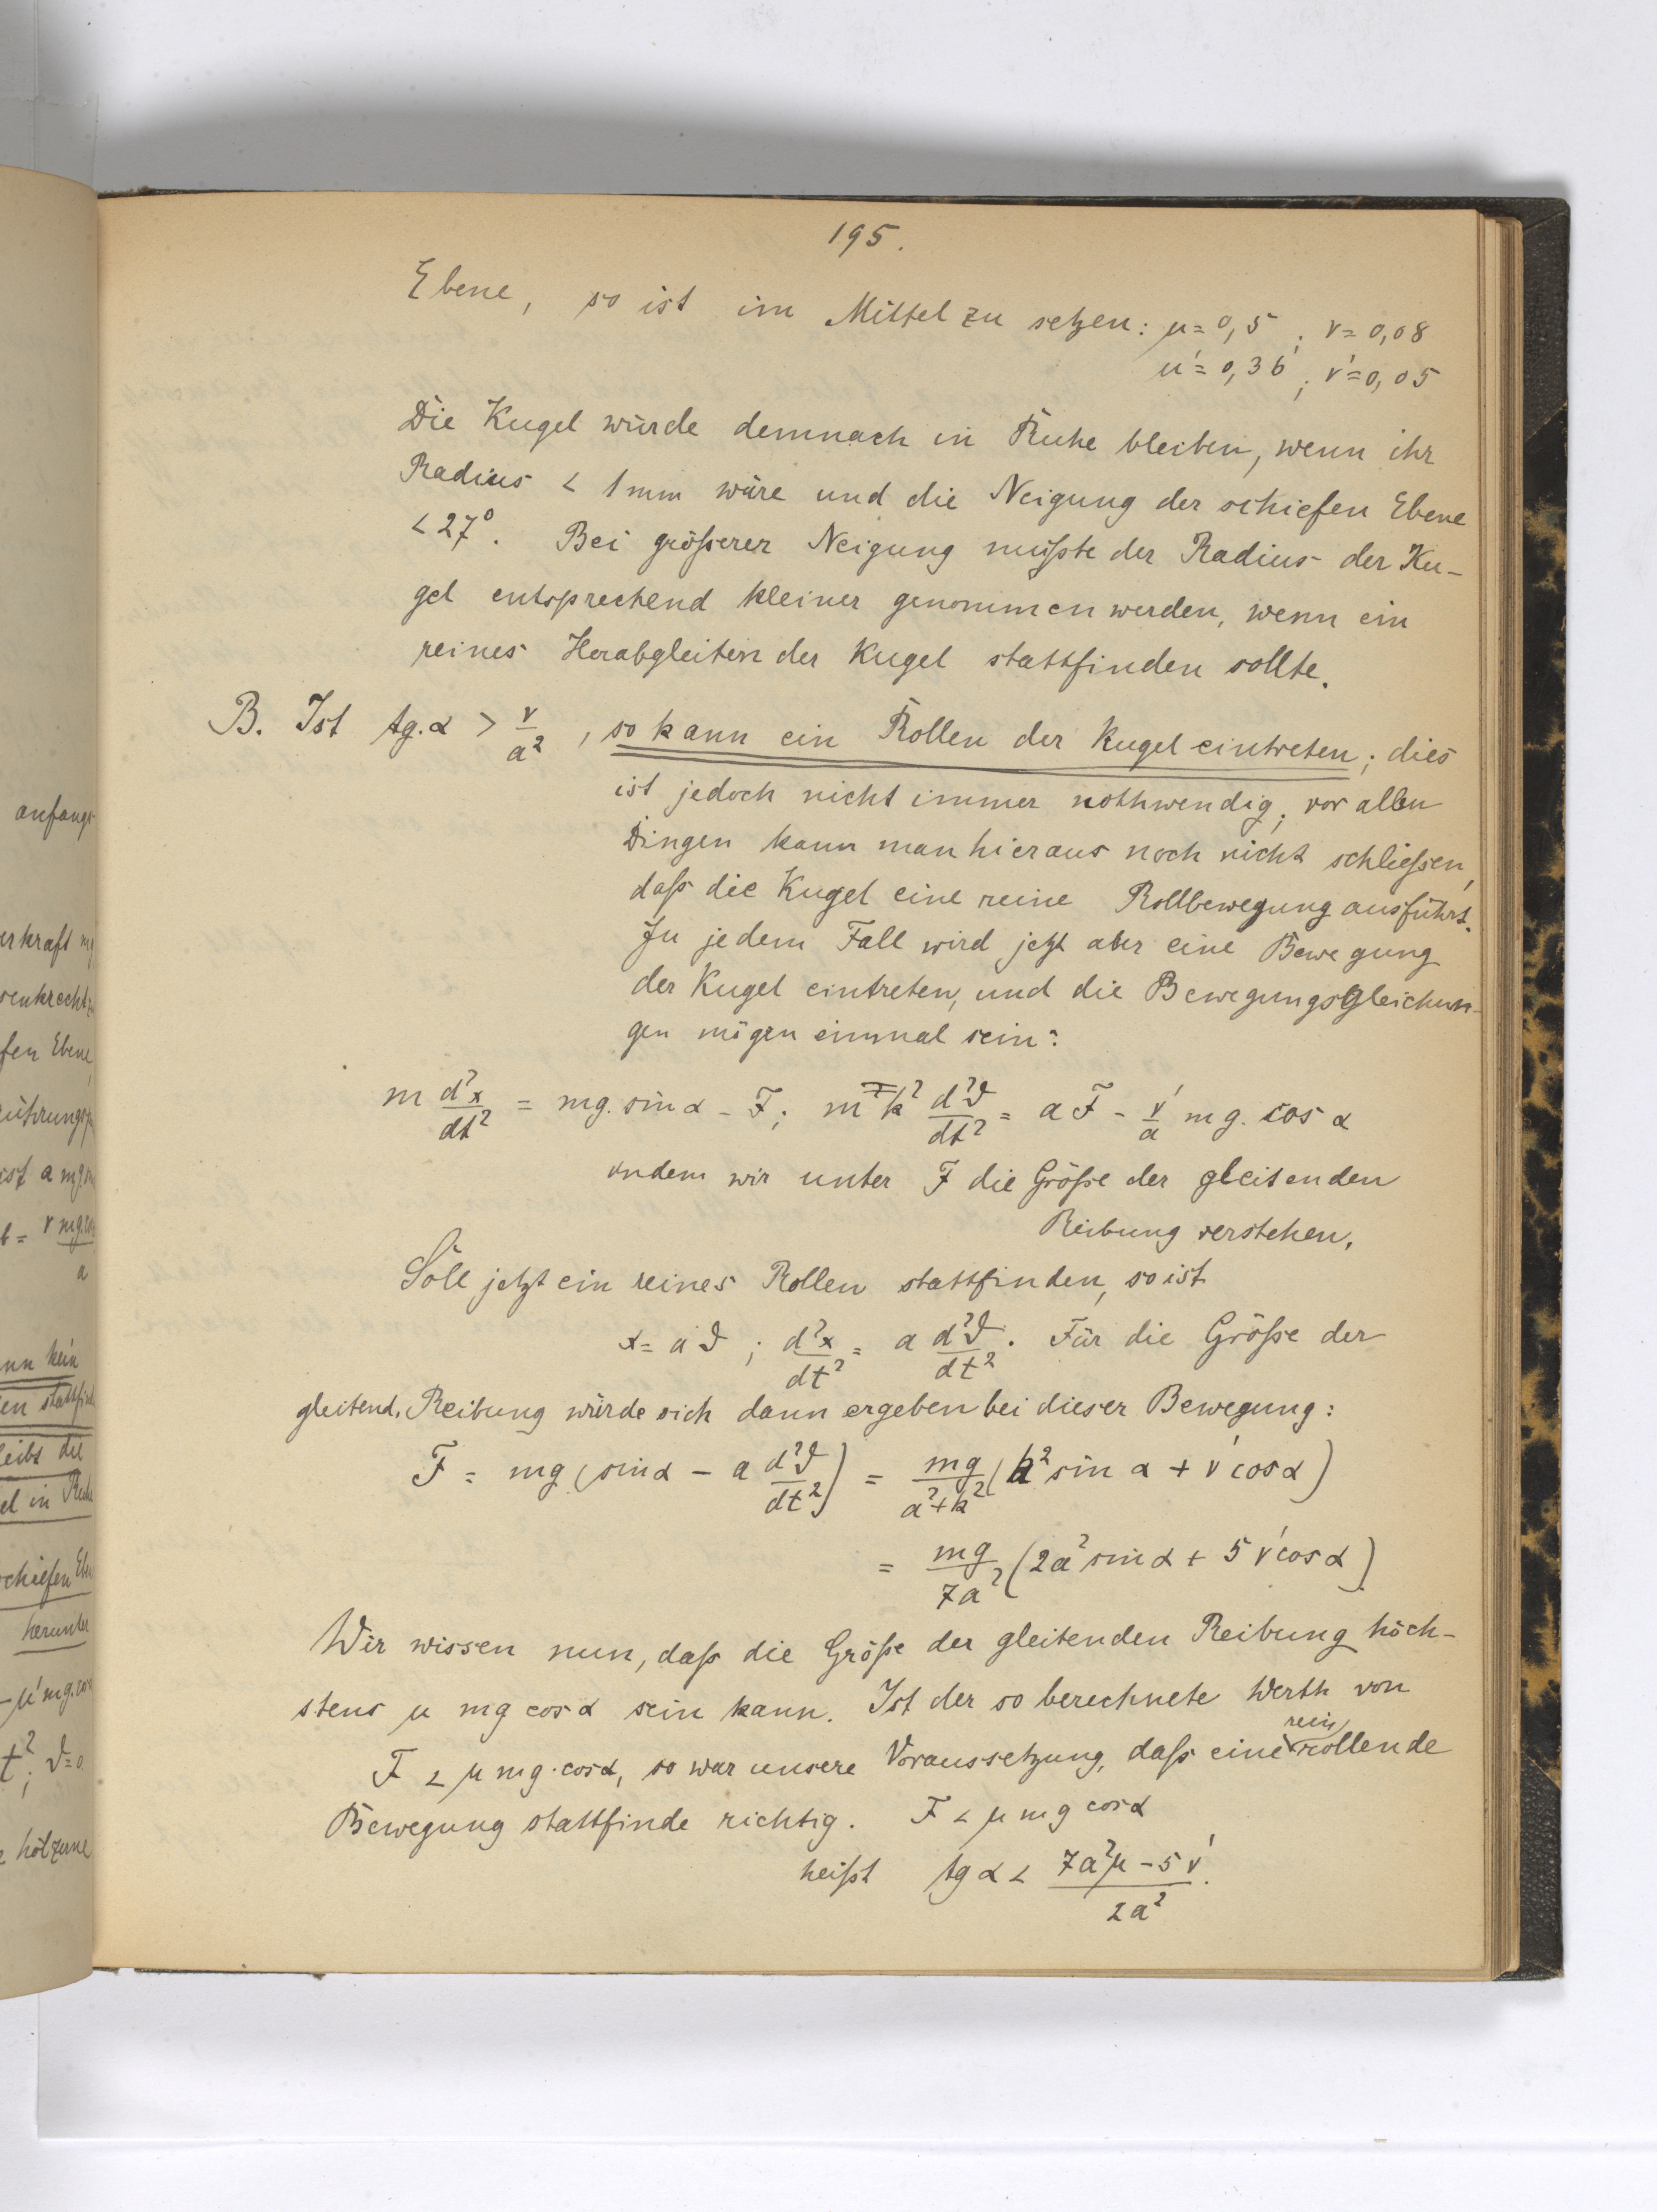 195.
Ebene, so ist im Mittel zu setzen: μ = 0,5 ; ν = 0,08
μ' = 0,36 ; ν' = 0,05
Die Kugel würde demnach in Ruhe bleiben, wenn ihr
Radius < 1 mm wäre und die Neigung der schiefen Ebene
< 27°. Bei größerer Neigung müßte der Radius der Ku-
gel entsprechend kleiner genommen werden, wenn ein
reines Herabgleiten der Kugel stattfinden sollte.
B. Ist tg. α > ν/a², so kann ein Rollen der Kugel eintreten; dies
ist jedoch nicht immer nothwendig; vor allen
Dingen kann man hieraus noch nicht schließen,
daß die Kugel eine reine Rollbewegung ausführt.
In jedem Fall wird jetzt aber eine Bewegung
der Kugel eintreten, und die Bewegungsgleichun-
gen mögen einmal sein:
m d²x/dt² = mg. sin α - F; m k² d²ϑ/dt² = a F - ν'/a mg. cos α
indem wir unter F die Größe der gleitenden
Reibung verstehen.
Soll jetzt ein reines Rollen stattfinden, so ist
x = a ϑ ; d²x/dt² = a d²ϑ/dt². Für die Größe der
gleitend. Reibung würde sich dann ergeben bei dieser Bewegung:
F = mg (sin α - a d²ϑ/dt²) = mg/(a²+k²) (k² sin α + ν' cos α)
= mg/7a² (2a² sin α + 5 ν' cos α)
Wir wissen nun, daß die Größe der gleitenden Reibung höch-
stens μ mg cos α sein kann. Ist der so berechnete Werth von
F < μ mg. cos α, so war unsere Voraussetzung, daß eine rein rollende
Bewegung stattfinde richtig. F < μ mg cos α
heißt tg α < (7a²μ - 5 ν')/2a².
anfangs
erkraft mg
senkrecht
fen Ebene
ist a mg
ν mg.
a
nn kein
leibt die
el in Ruhe
schiefen
herunter
- μ' mg.
t²; ϑ=0
hölzerne